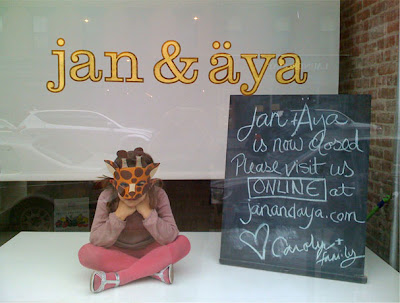 jan & äya
Jan + Äya
is now closed
Please visit us
ONLINE at
janandaya.com
♡ Carolyn +
family